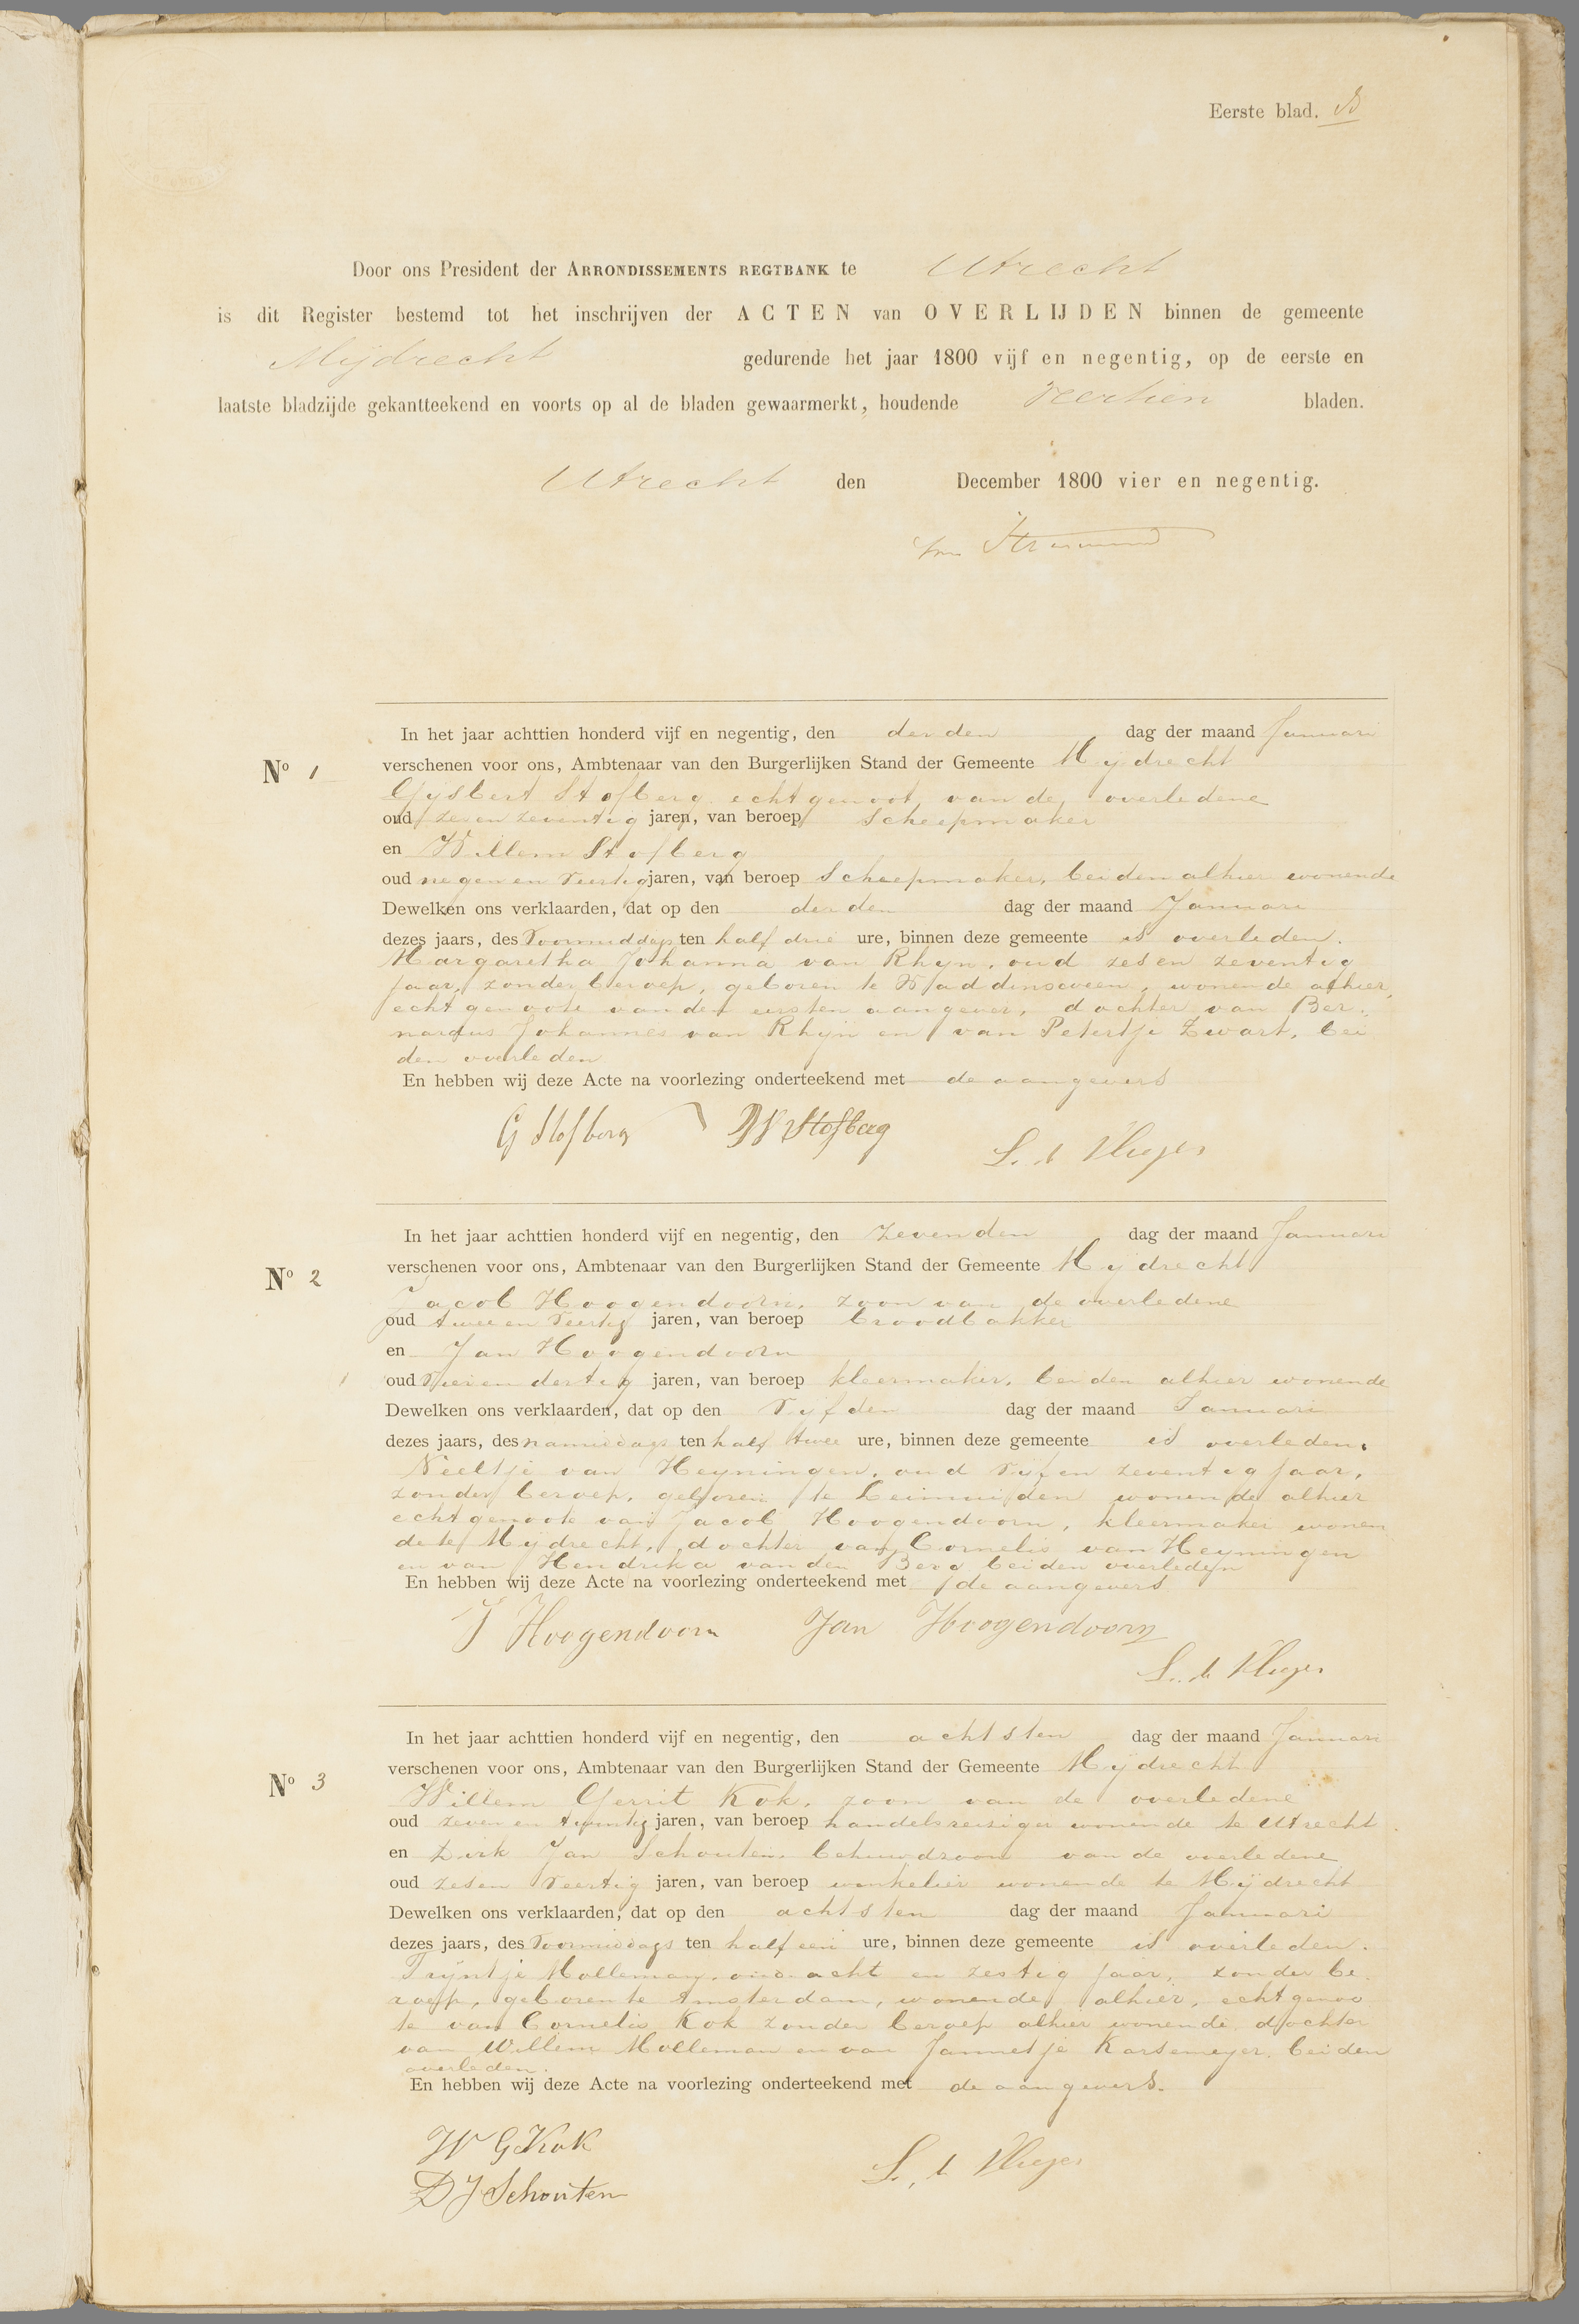 Eerste blad.
Door ons President der ARRONDISSEMENTS REGTBANK te Utrecht
is dit Register bestemd tot het inschrijven der ACTEN van OVERLIJDEN binnen de gemeente
Mijdrecht gedurende het jaar 1800 vijf en negentig, op de eerste en
laatste bladzijde gekantteekend en voorts op al de bladen gewaarmerkt, houdende veertien bladen.
Utrecht den December 1800 vier en negentig.
In het jaar achttien honderd vijf en negentig, den derden dag der maand Januari
No 1 verschenen voor ons, Ambtenaar van den Burgerlijken Stand der Gemeente Mijdrecht
Gijsbert Stofberg echtgenoot van de overledene
oud zeven zeventig jaren, van beroep Scheepmaker
en Willem Stofberg
oud negen en veertig jaren, van beroep Scheepmaker, beiden alhier wonende
Dewelken ons verklaarden, dat op den derden dag der maand Januari
dezes jaars, des voormiddags ten half drie ure, binnen deze gemeente is overleden.
Margaretha Johanna van Rhijn, oud zes en zeventig
jaar, zonder beroep, geboren te Waddinxveen, wonende alhier,
echtgenoote van den eersten aangever, dochter van Ber-
nardus Johannes van Rhijn en van Petertje Zwart, bei
den overleden
En hebben wij deze Acte na voorlezing onderteekend met de aangevers
G Stofberg W Stofberg
L. d. Vlieger
In het jaar achttien honderd vijf en negentig, den zevenden dag der maand Januari
No 2 verschenen voor ons, Ambtenaar van den Burgerlijken Stand der Gemeente Mijdrecht
Jacob Hoogendoorn, zoon van de overledene
oud twee en veertig jaren, van beroep broodbakker
en Jan Hoogendoorn
oud vier en dertig jaren, van beroep kleermaker, beiden alhier wonende
Dewelken ons verklaarden, dat op den vijfden dag der maand Januari
dezes jaars, des namiddags ten half twee ure, binnen deze gemeente is overleden.
Neeltje van Heyningen, oud vijf en zeventig jaar,
zonder beroep, geboren te Leimuiden wonende alhier
echtgenoote van Jacob Hoogendoorn, kleermaker wonen
de te Mijdrecht, dochter van Cornelis van Heyningen
en van Hendrika van den Berg beiden overleden
En hebben wij deze Acte na voorlezing onderteekend met de aangevers
J Hoogendoorn Jan Hoogendoorn
L. d. Vlieger
In het jaar achttien honderd vijf en negentig, den achtsten dag der maand Januari
No 3 verschenen voor ons, Ambtenaar van den Burgerlijken Stand der Gemeente Mijdrecht
Willem Gerrit Kok, zoon van de overledene
oud zeven en twintig jaren, van beroep handelsreiziger wonende te Utrecht
en Dirk Jan Schouten, behuwdzoon van de overledene
oud zes en veertig jaren, van beroep winkelier wonende te Mijdrecht
Dewelken ons verklaarden, dat op den achtsten dag der maand Januari
dezes jaars, des voormiddags ten half een ure, binnen deze gemeente is overleden.
Trijntje Molleman, oud acht en zestig jaar, zonder be
roep, geboren te Amsterdam, wonende alhier, echtgenoo
te van Cornelis Kok zonder beroep alhier wonende, dochter
van Willem Molleman en van Jannetje Karsemeyer, beiden
overleden.
En hebben wij deze Acte na voorlezing onderteekend met de aangevers.
W G Kok
L. d. Vlieger
D J Schouten